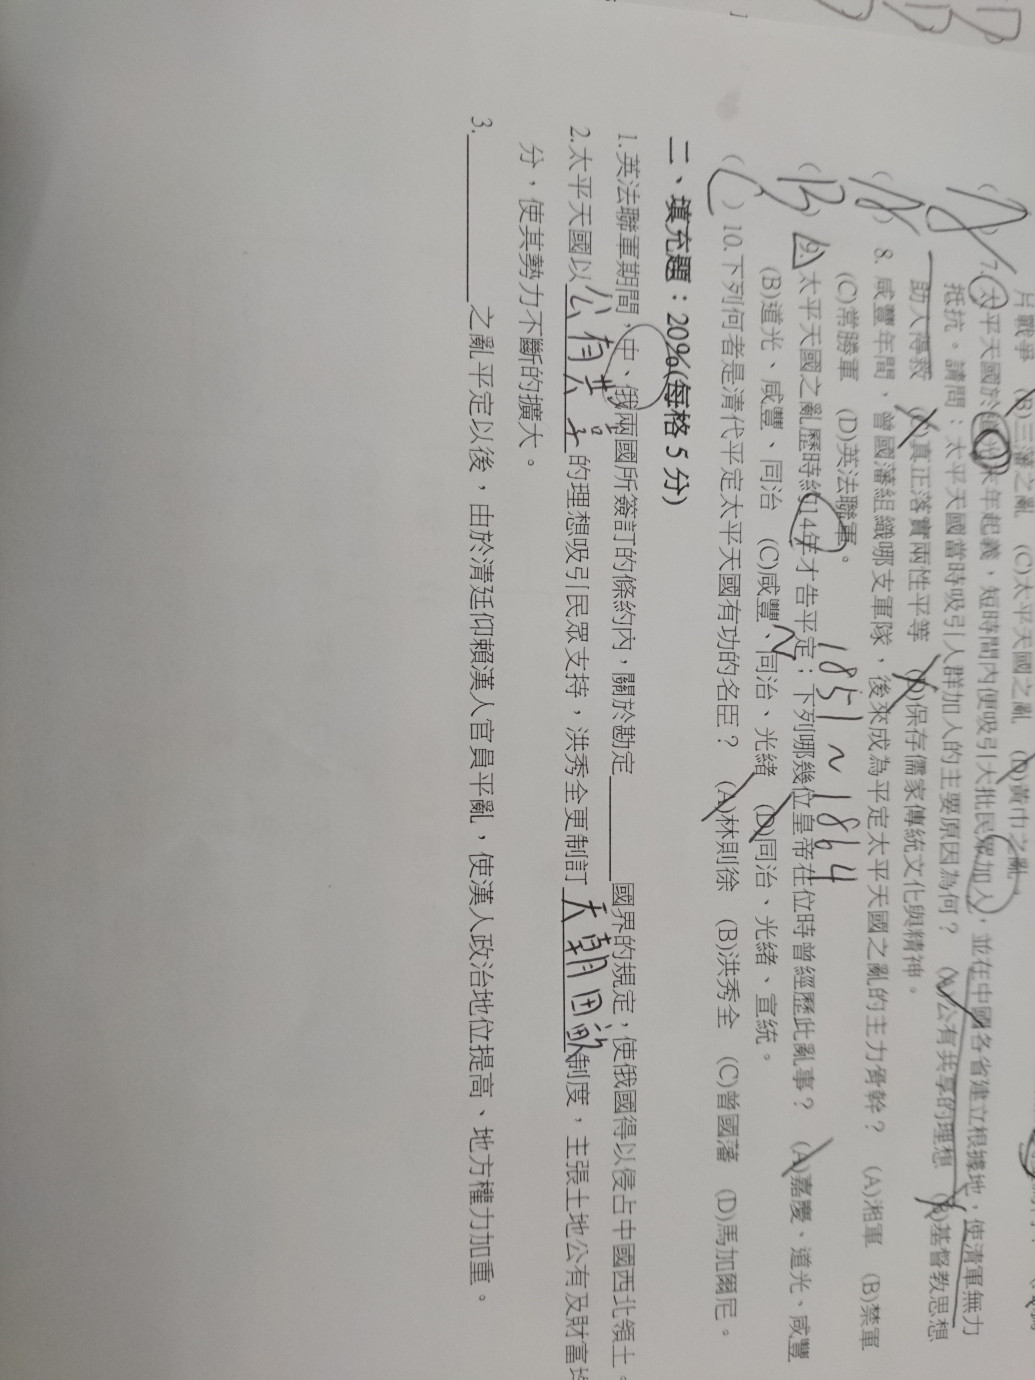 片戰爭 (B)三藩之亂 (C)太平天國之亂 (D)黃巾之亂
(A) 7. 太平天國於道光末年起義，短時間內便吸引大批民眾加入，並在中國各省建立根據地，使清軍無力
抵抗。請問：太平天國當時吸引人群加入的主要原因為何？ (A)公有共享的理想 (B)基督教思想
助人得救 (C)真正落實兩性平等 (D)保存儒家傳統文化與精神。
(A) 8. 咸豐年間，曾國藩組織哪支軍隊，後來成為平定太平天國之亂的主力骨幹？ (A)湘軍 (B)禁軍
(C)常勝軍 (D)英法聯軍。
1851~1864
(B) 9. 太平天國之亂歷時約14年才告平定；下列哪幾位皇帝在位時曾經歷此亂事？ (A)嘉慶、道光、咸豐
(B)道光、咸豐、同治 (C)咸豐、同治、光緒 (D)同治、光緒、宣統。
(C) 10.下列何者是清代平定太平天國有功的名臣？ (A)林則徐 (B)洪秀全 (C)曾國藩 (D)馬加爾尼。
二、填充題：20%(每格 5 分)
1.英法聯軍期間，中、俄兩國所簽訂的條約內，關於勘定________國界的規定，使俄國得以侵占中國西北領土。
2.太平天國以公有共享的理想吸引民眾支持，洪秀全更制訂天朝田畝制度，主張土地公有及財富均
分，使其勢力不斷的擴大。
3.____________之亂平定以後，由於清廷仰賴漢人官員平亂，使漢人政治地位提高、地方權力加重。